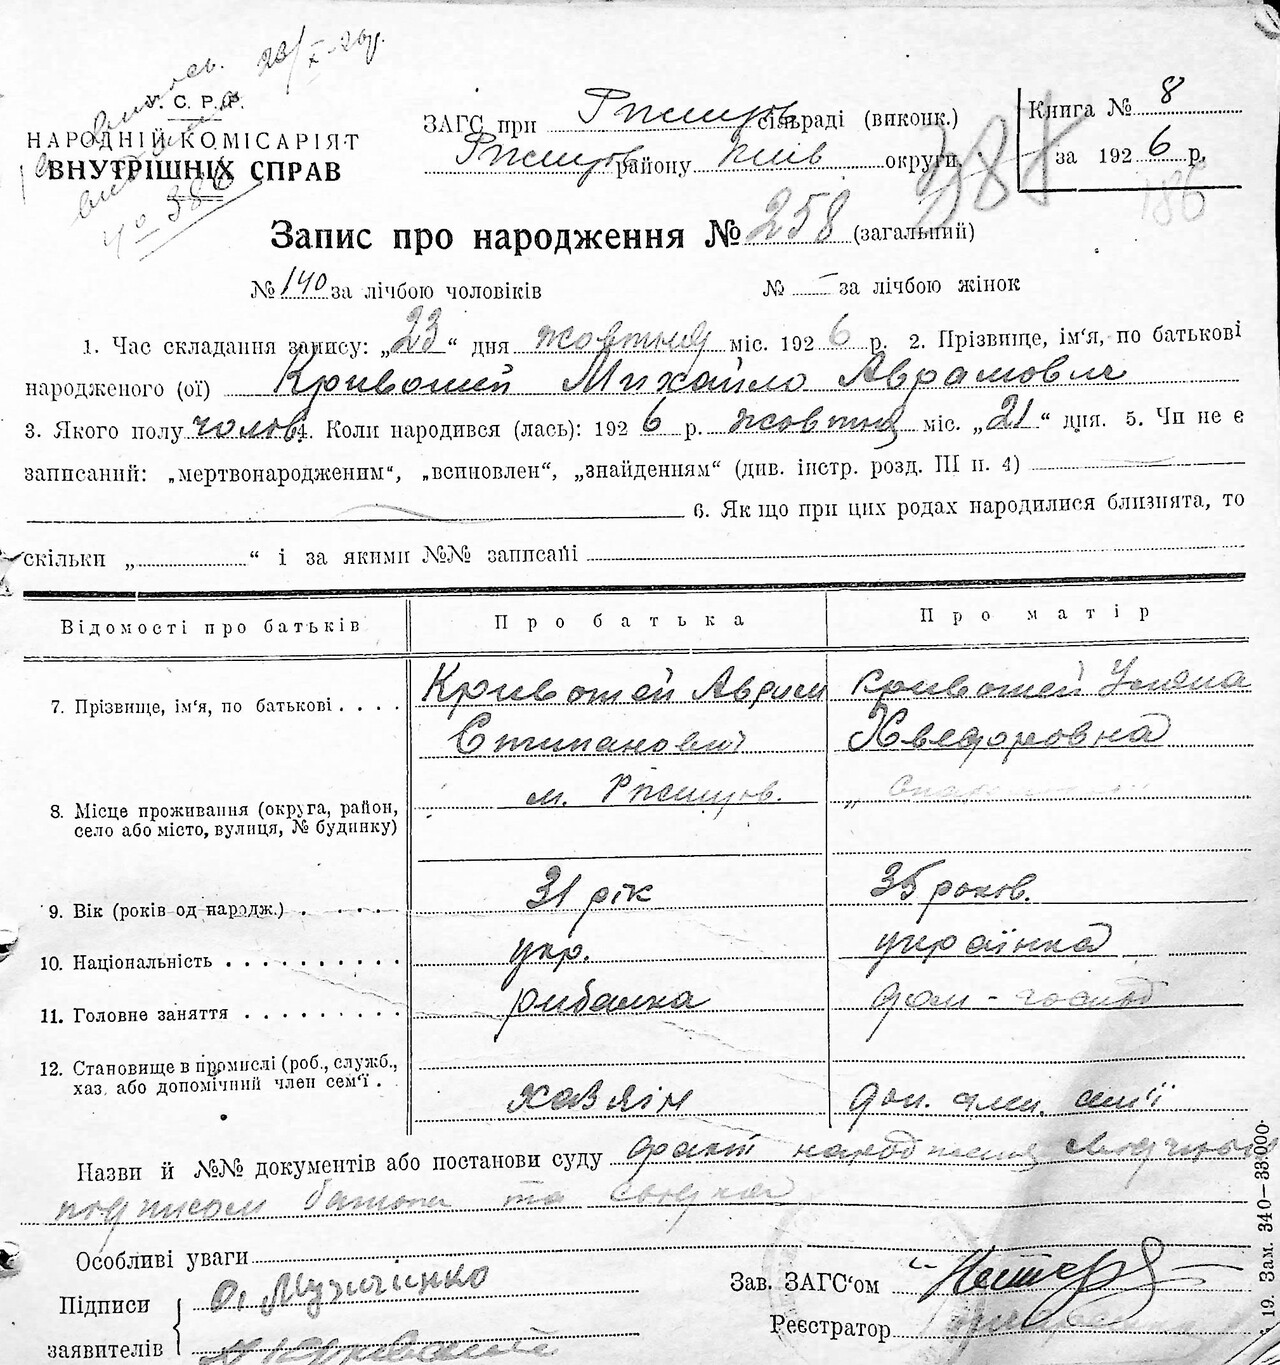 У. С. Р. Р.
НАРОДНІЙ КОМІСАРІЯТ
ВНУТРІШНІХ СПРАВ
№ 386
ЗАГС при Ржищів сільраді (виконк.)
Ржищів району Київ округи
388
Книга № 8
за 1926 р.
186
Запис про народження № 258 (загальний)
№ 140 за лічбою чоловіків № – за лічбою жінок
1. Час складання запису: „23“ дня жовтня міс. 1926 р. 2. Прізвище, ім‘я, по батькові
народженого (ої) Кривошей Михайло Аврамович
3. Якого полу чолов. 4. Коли народився (лась): 1926 р. жовтня міс. „21“ дня. 5. Чи не є
записаний: „мертвонародженим“, „всиновлен“, „знайденням“ (див. інстр. розд. III п. 4)
6. Якщо при цих родах народилися близнята, то
скільки „ “ і за якими №№ записані
Відомості про батьків Про батька Про матір
7. Прізвище, ім‘я, по батькові . . . . Кривошей Аврам Кривошей Уляна
Степанович Хведоровна
м. Ржищів.
8. Місце проживання (округа, район,
село або місто, вулиця, № будинку)
9. Вік (років од народж.) . . . . . 31 рік 35 років.
10. Національність . . . . . . . . . . укр. українка
11. Головне заняття . . . . . . . . . рибалка дом-господ
12. Становище в промислі (роб., служб.,
хаз. або допомічний член сем‘ї . хазяїн доп. член. сім'ї
Назви й №№ документів або постанови суду факт народження свідчить
підписом батька та свідка
Особливі уваги
Підписи
заявителів
О. Музиченко
А Кривошей
Зав. ЗАГС‘ом
Реєстратор
19. Зам. 340–33.000.